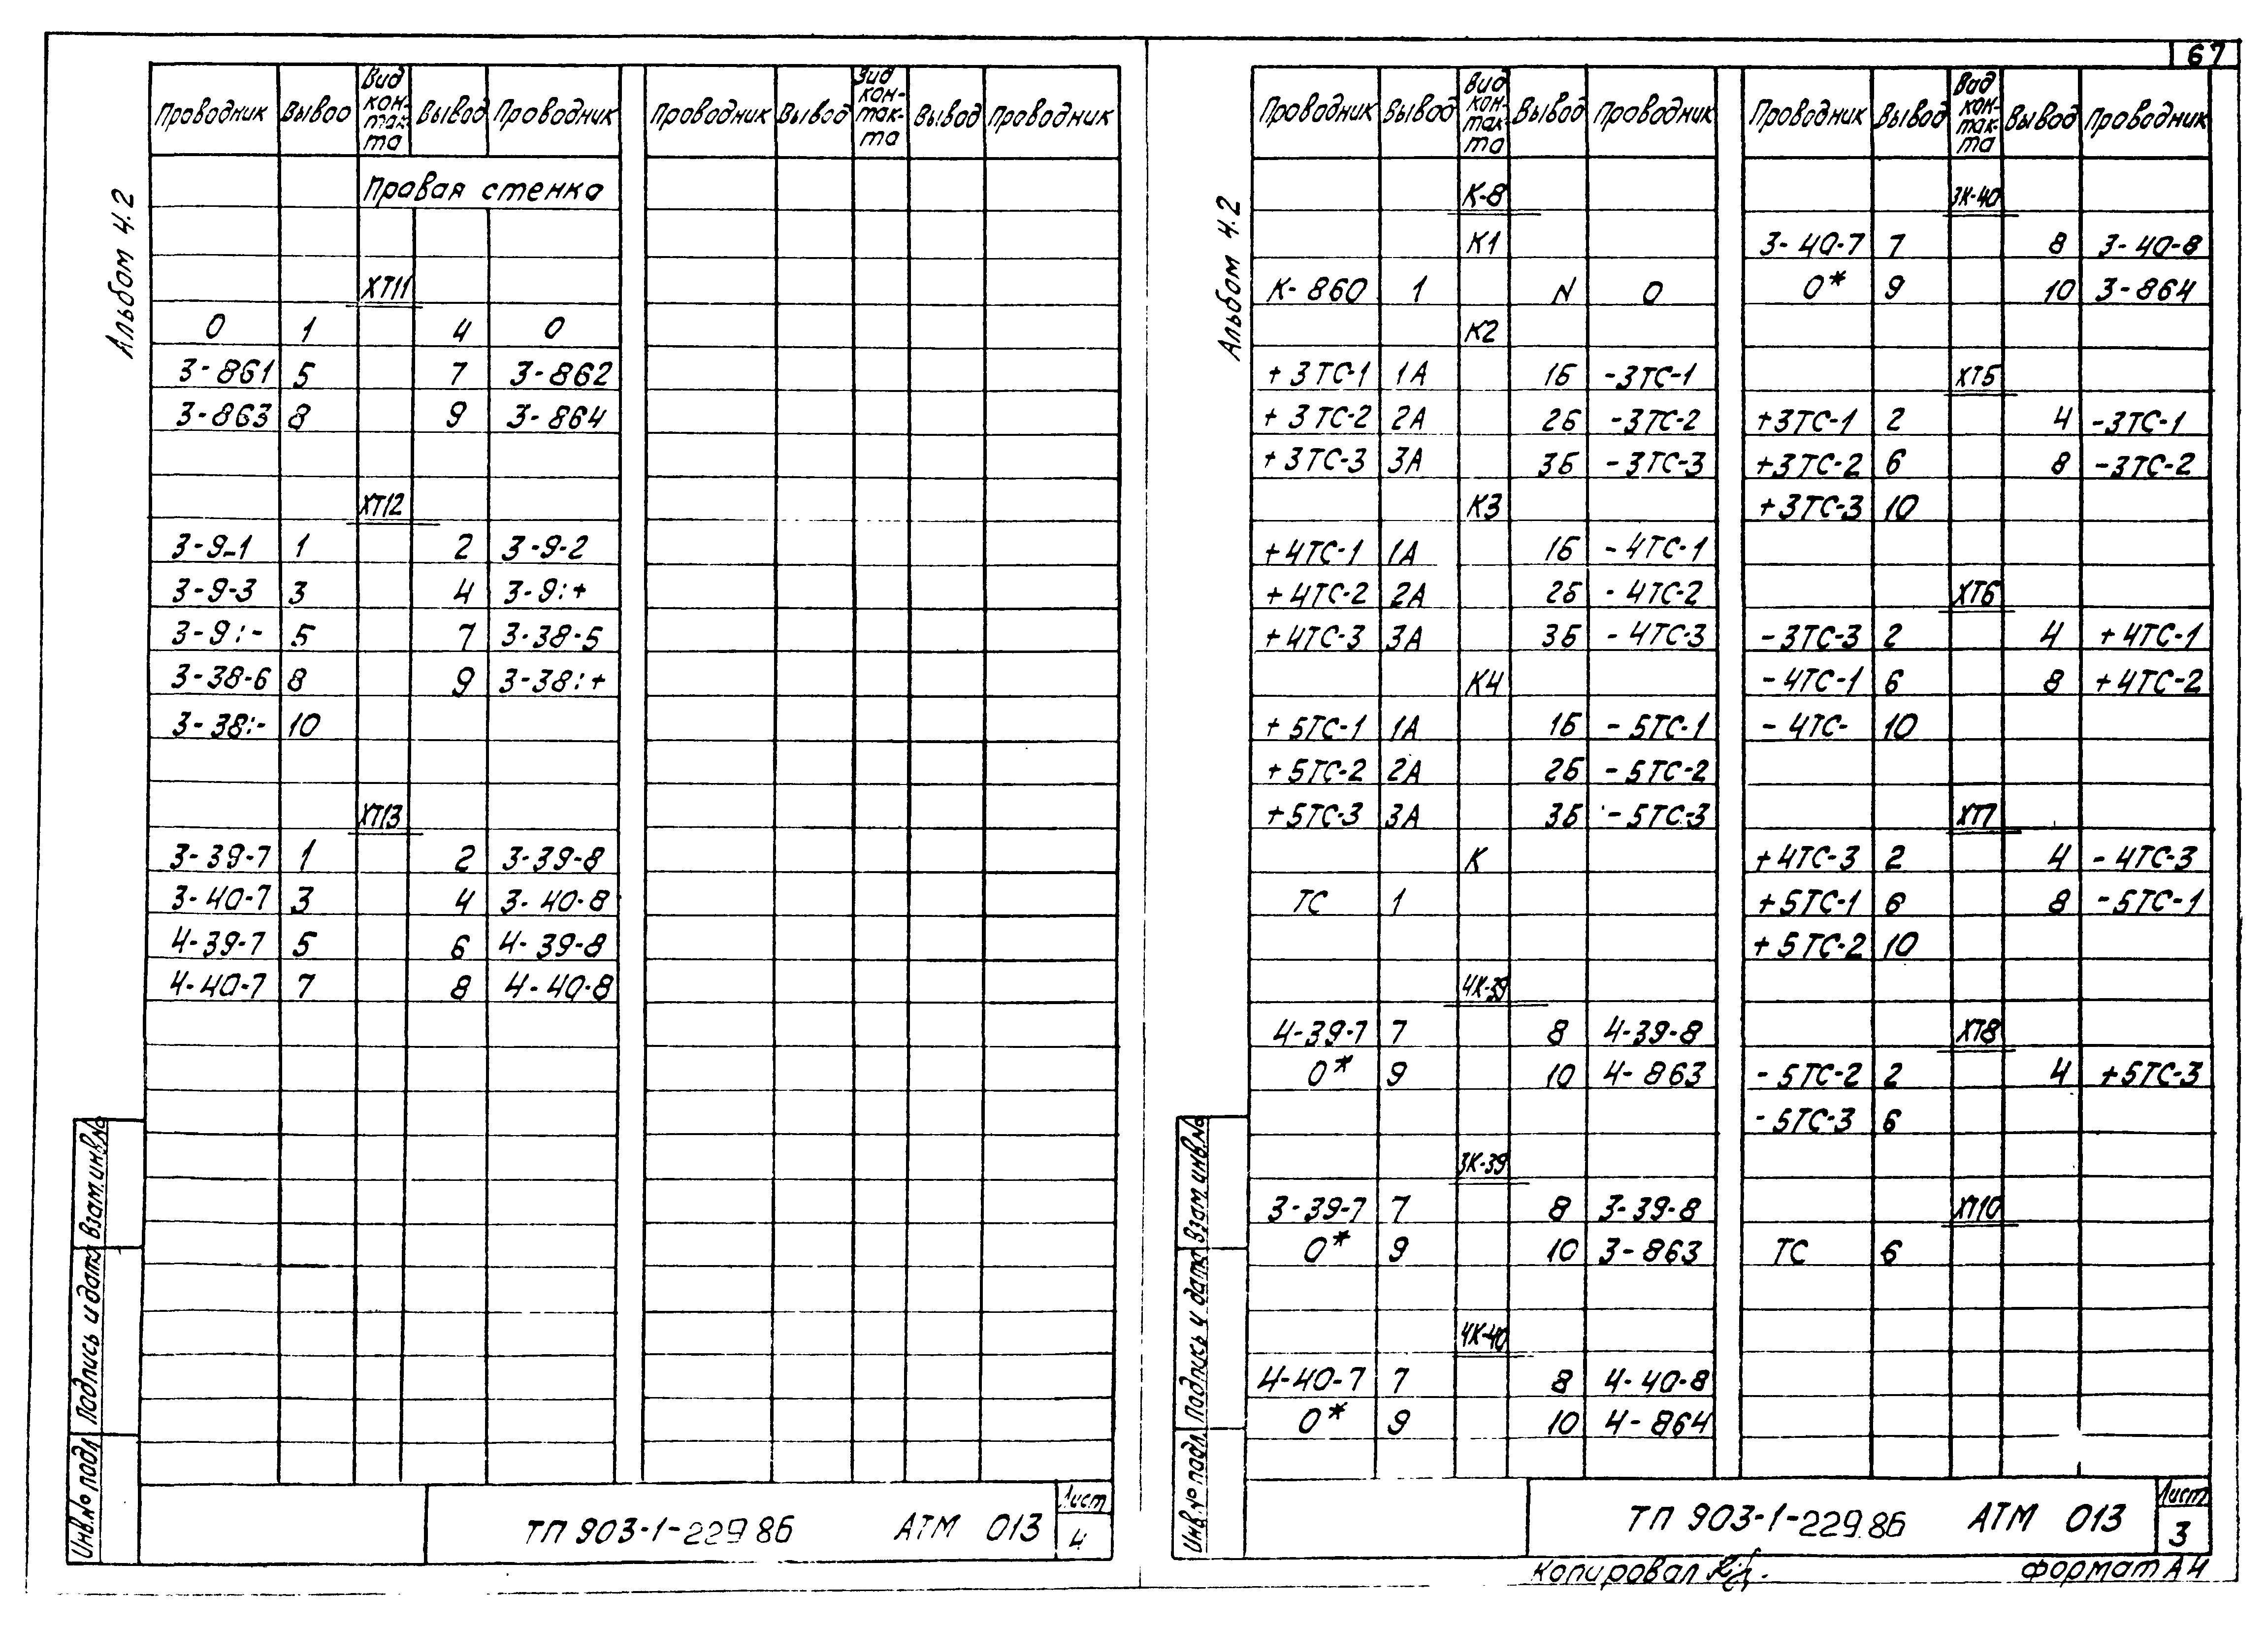 67
Альбом 4.2
Проводник Вывод Вид кон- так- та Вывод Проводник Проводник Вывод Вид кон- так- та Вывод Проводник
Правая стенка
XT11
0 1 4 0
3-861 5 7 3-862
3-863 8 9 3-864
XT12
3-9-1 1 2 3-9-2
3-9-3 3 4 3-9:+
3-9:- 5 7 3-38-5
3-38-6 8 9 3-38:+
3-38:- 10
XT13
3-39-7 1 2 3-39-8
3-40-7 3 4 3-40-8
4-39-7 5 6 4-39-8
4-40-7 7 8 4-40-8
Инв.№ подл. Подпись и дата Взам.инв.№
ТП 903-1-229.86 АТМ 013
Лист
4
Альбом 4.2
Проводник Вывод Вид кон- так- та Вывод Проводник
К-8
К1
К-860 1 N 0
К2
+3ТС-1 1А 1Б -3ТС-1
+3ТС-2 2А 2Б -3ТС-2
+3ТС-3 3А 3Б -3ТС-3
К3
+4ТС-1 1А 1Б -4ТС-1
+4ТС-2 2А 2Б -4ТС-2
+4ТС-3 3А 3Б -4ТС-3
К4
+5ТС-1 1А 1Б -5ТС-1
+5ТС-2 2А 2Б -5ТС-2
+5ТС-3 3А 3Б -5ТС-3
К
ТС 1
4К-39
4-39-7 7 8 4-39-8
0* 9 10 4-863
3К-39
3-39-7 7 8 3-39-8
0* 9 10 3-863
4К-40
4-40-7 7 8 4-40-8
0* 9 10 4-864
Проводник Вывод Вид кон- так- та Вывод Проводник
3К-40
3-40-7 7 8 3-40-8
0* 9 10 3-864
XT5
+3ТС-1 2 4 -3ТС-1
+3ТС-2 6 8 -3ТС-2
+3ТС-3 10
XT6
-3ТС-3 2 4 +4ТС-1
-4ТС-1 6 8 +4ТС-2
-4ТС- 10
XT7
+4ТС-3 2 4 -4ТС-3
+5ТС-1 6 8 -5ТС-1
+5ТС-2 10
XT8
-5ТС-2 2 4 +5ТС-3
-5ТС-3 6
XT10
ТС 6
Инв.№ подл. Подпись и дата Взам.инв.№
ТП 903-1-229.86 АТМ 013
Лист
3
Копировал
Формат А4